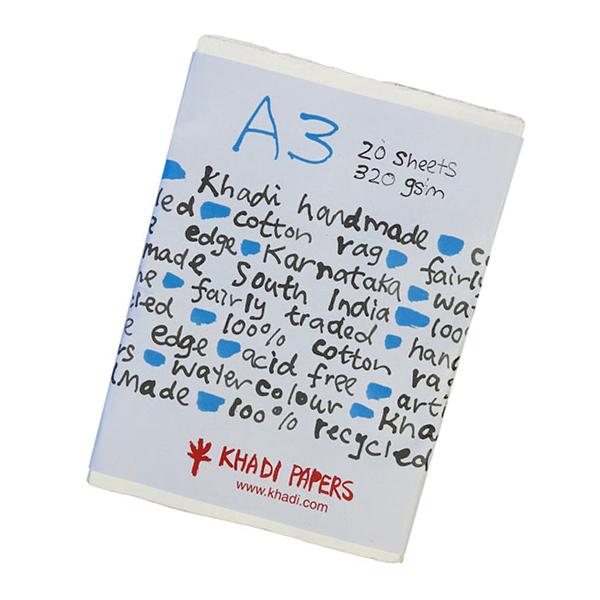 A3
20 sheets
320 gsm
Khadi handmade
cotton rag fairly
edge Karnataka
made South India 100
fairly traded
100% cotton
edge acid free
watercolour
made 100% recycled
KHADI PAPERS
www.khadi.com